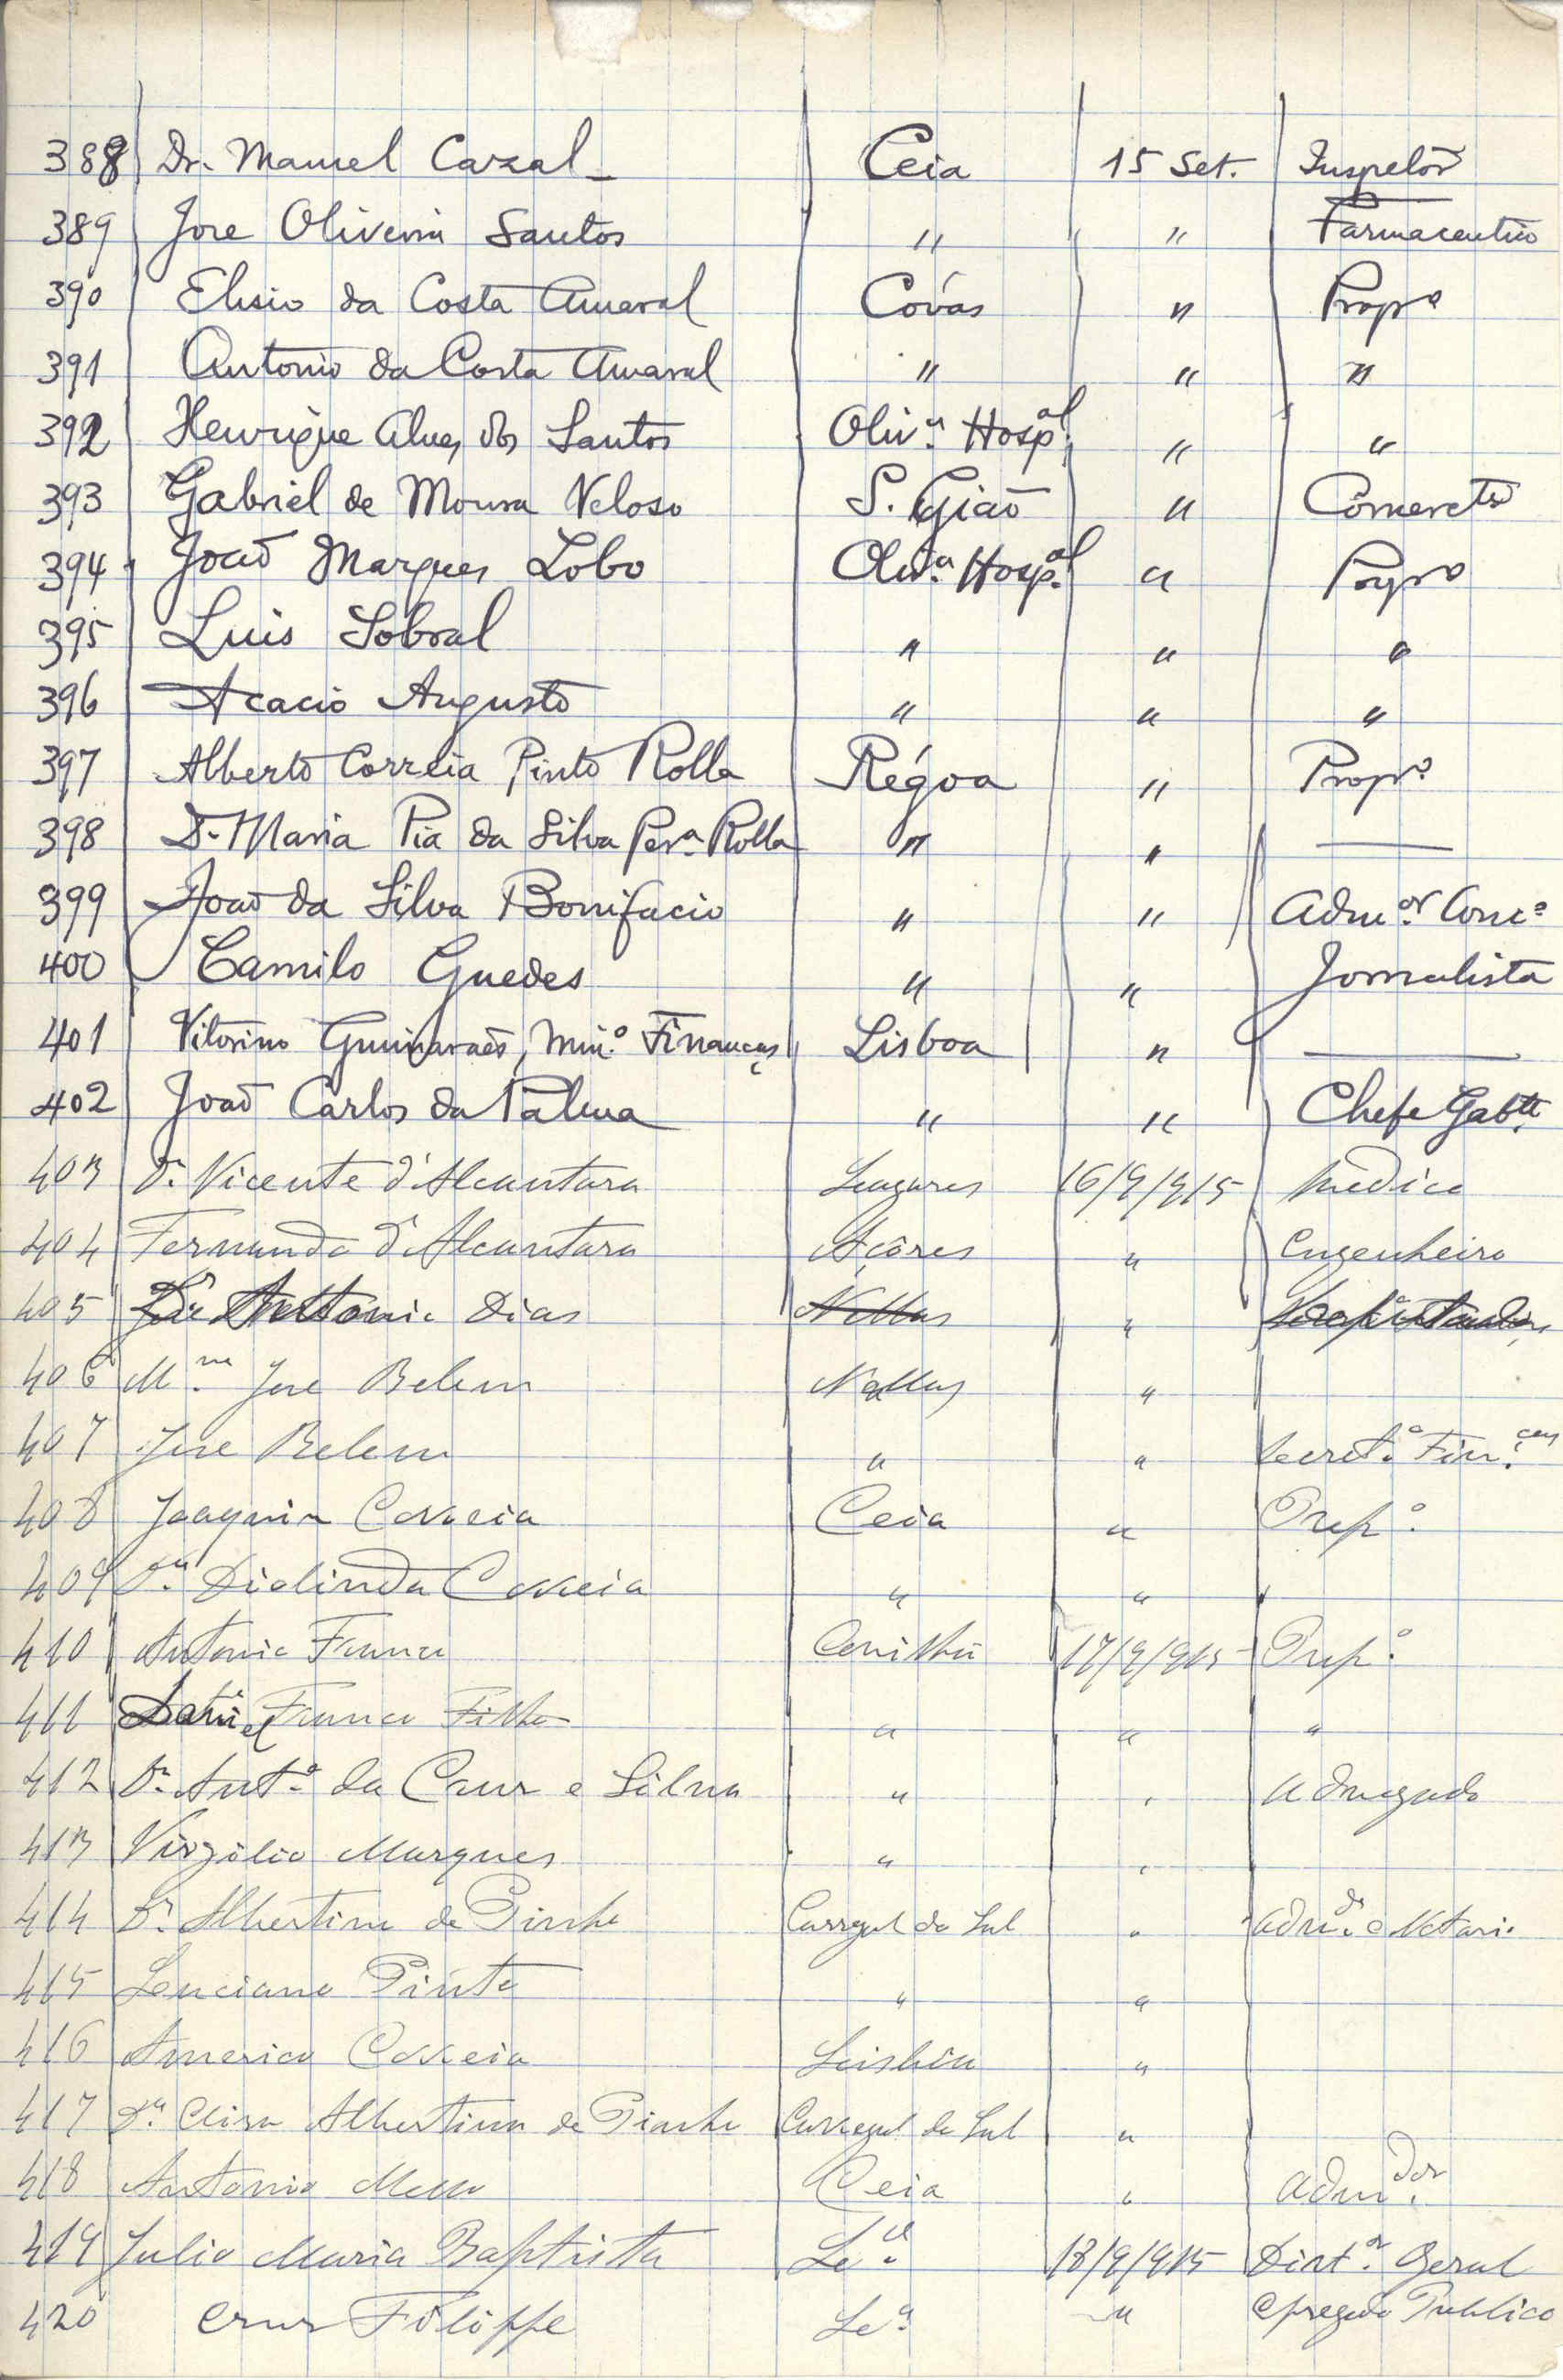 388 Dr. Manuel Cazal Ceia 15 Set. Inspetor
389 Jose Oliveira Santos " " Farmaceutico
390 Elisio da Costa Amaral Cóvas " Propº
391 Antonio da Costa Amaral " " "
392 Henrique Alves dos Santos Olivª Hospal " "
393 Gabriel de Moura Veloso S. Gião " Comercte
394 João Marques Lobo Olivª Hospal " Propº
395 Luis Sobral " " "
396 Acacio Augusto " " "
397 Alberto Correia Pinto Rolla Régoa " Propº
398 D. Maria Pia da Silva Perª Rolla " " —
399 João da Silva Bonifacio " " Admor Concº
400 Camilo Guedes " " Jornalista
401 Vitorino Guimarães, Minº Finanças Lisboa " —
402 João Carlos da Palma " " Chefe Gabte
403 Dr. Vicente d'Alcantara 16/9/915 Medico
404 Fernando d'Alcantara Açôres " Engenheiro
405 Antonio Dias Nellas "
406 Mme Jose Belem Nellas "
407 Jose Belem " " Secretº Finças
408 Joaquim Correia Ceia " Propº
409 Dª Diolinda Correia " " "
410 Antonio Franco Covilhã 17/9/915 Propº
411 Daniel Franco Filho " " "
412 Dr. Antº da Cruz e Silva " " Advogado
413 Virgilio Marques " "
414 Dr. Albertino de Carregal do Sal " Admdor e Notario
415 Luciano Pinto " "
416 Americo Correia Lisbôa "
417 Dª Elisa Albertina de Carregal do Sal "
418 Antonio Mello Ceia " Admdor
419 Julio Maria Baptista Lxª 18/9/915 Dirtor Geral
420 Cruz Filippe Lxª " Epregado Publico